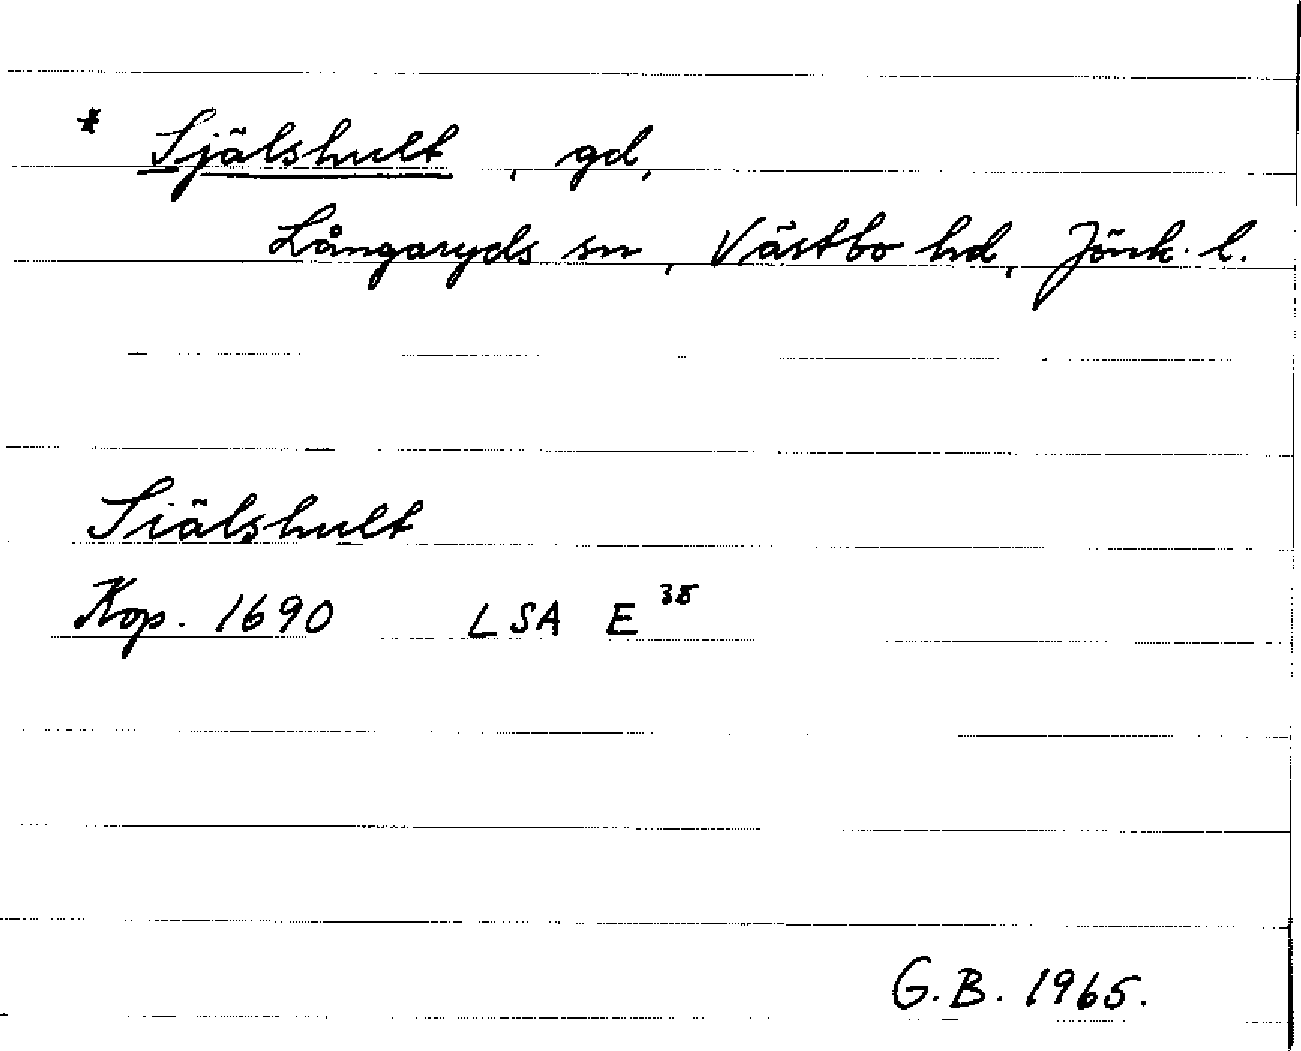 * Själshult, gd,
Långaryds sn, Västbo hd, Jönk. l.
Siälshult
Kop. 1690 LSA E 38
G.B. 1965.